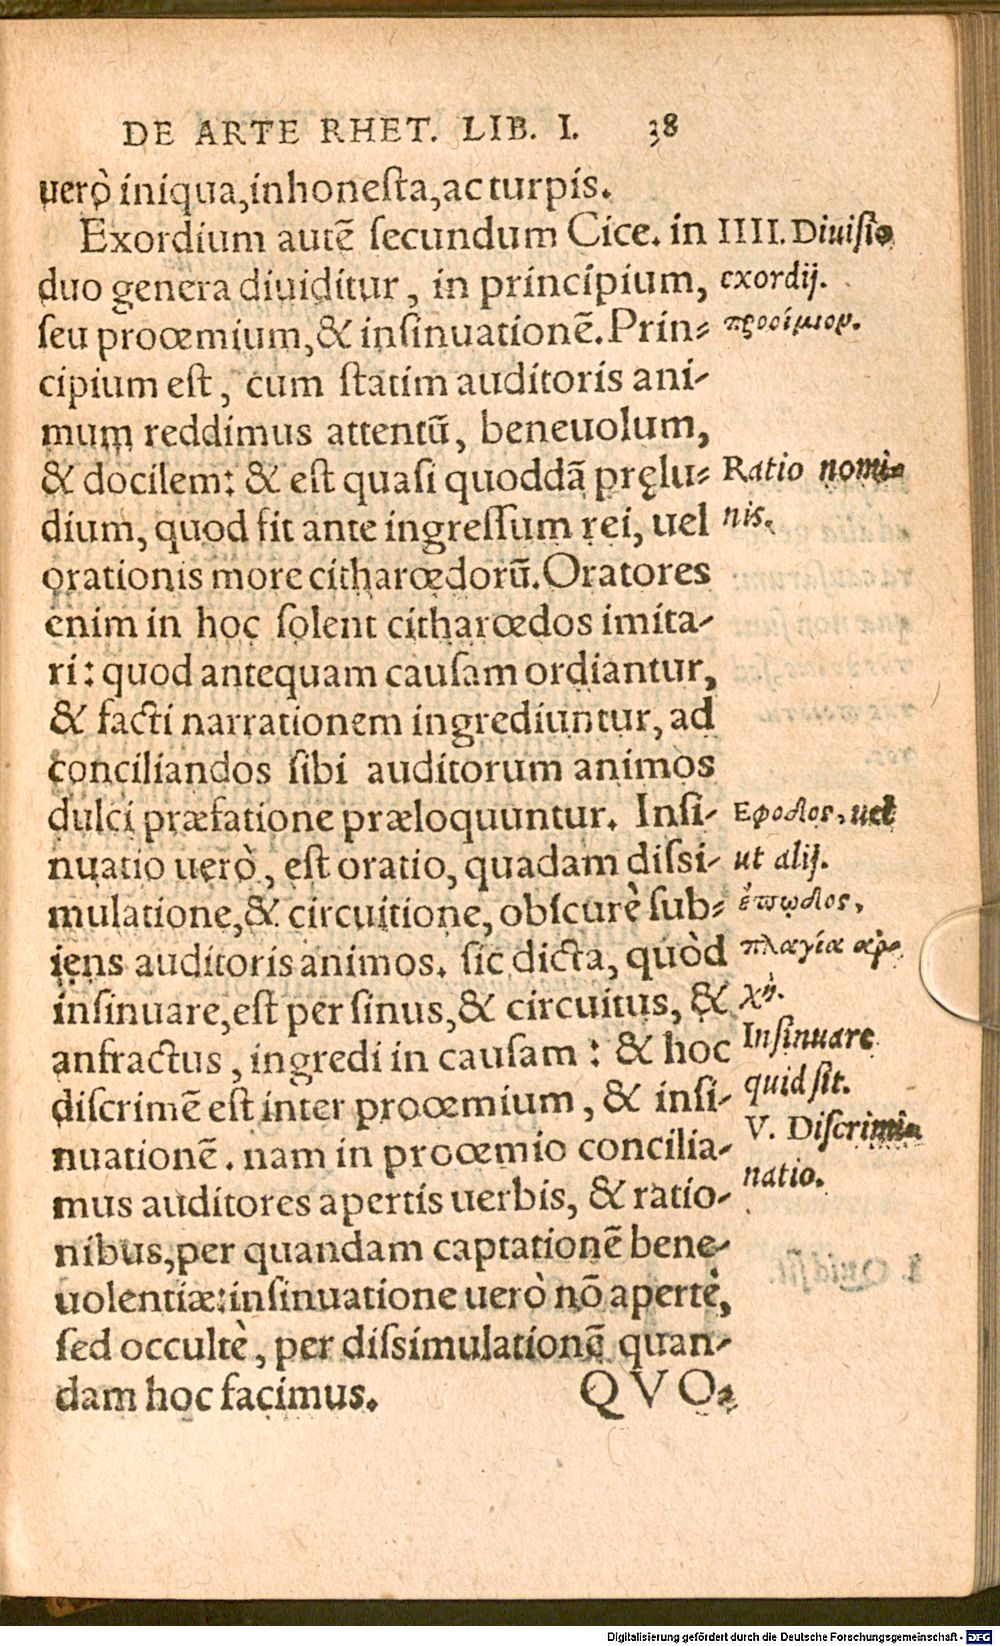 DE ARTE RHET. LIB. I. 38
uerò iniqua, inhonesta, ac turpis.
Exordium autẽ secundum Cice. in
duo genera diuiditur, in principium,
seu proœmium, & insinuationẽ. Prin-
cipium est, cum statim auditoris ani-
mum reddimus attentũ, beneuolum,
& docilem: & est quasi quoddã pręlu-
dium, quod fit ante ingressum rei, uel
orationis more citharœdorũ. Oratores
enim in hoc solent citharœdos imita-
ri: quod antequam causam ordiantur,
& facti narrationem ingrediuntur, ad
conciliandos sibi auditorum animos
dulci præfatione præloquuntur. Insi-
nuatio uerò, est oratio, quadam dissi-
mulatione, & circuitione, obscurè sub-
iens auditoris animos. sic dicta, quòd
insinuare, est per sinus, & circuitus, &
anfractus, ingredi in causam: & hoc
discrimẽ est inter proœmium, & insi-
nuationẽ. nam in proœmio concilia-
mus auditores apertis uerbis, & ratio-
nibus, per quandam captationẽ bene-
uolentiæ: insinuatione uerò nõ apertè,
sed occultè, per dissimulationẽ quan-
dam hoc facimus.
QVO-
IIII. Diuisio
exordij.
προοίμιον.
Ratio nomi-
nis.
Εφοδος, uel
ut alij.
ἐπῳδος,
πλαγία ἀρ-
χή.
Insinuare
quid sit.
V. Discrimi-
natio.
Digitalisierung gefördert durch die Deutsche Forschungsgemeinschaft - DFG